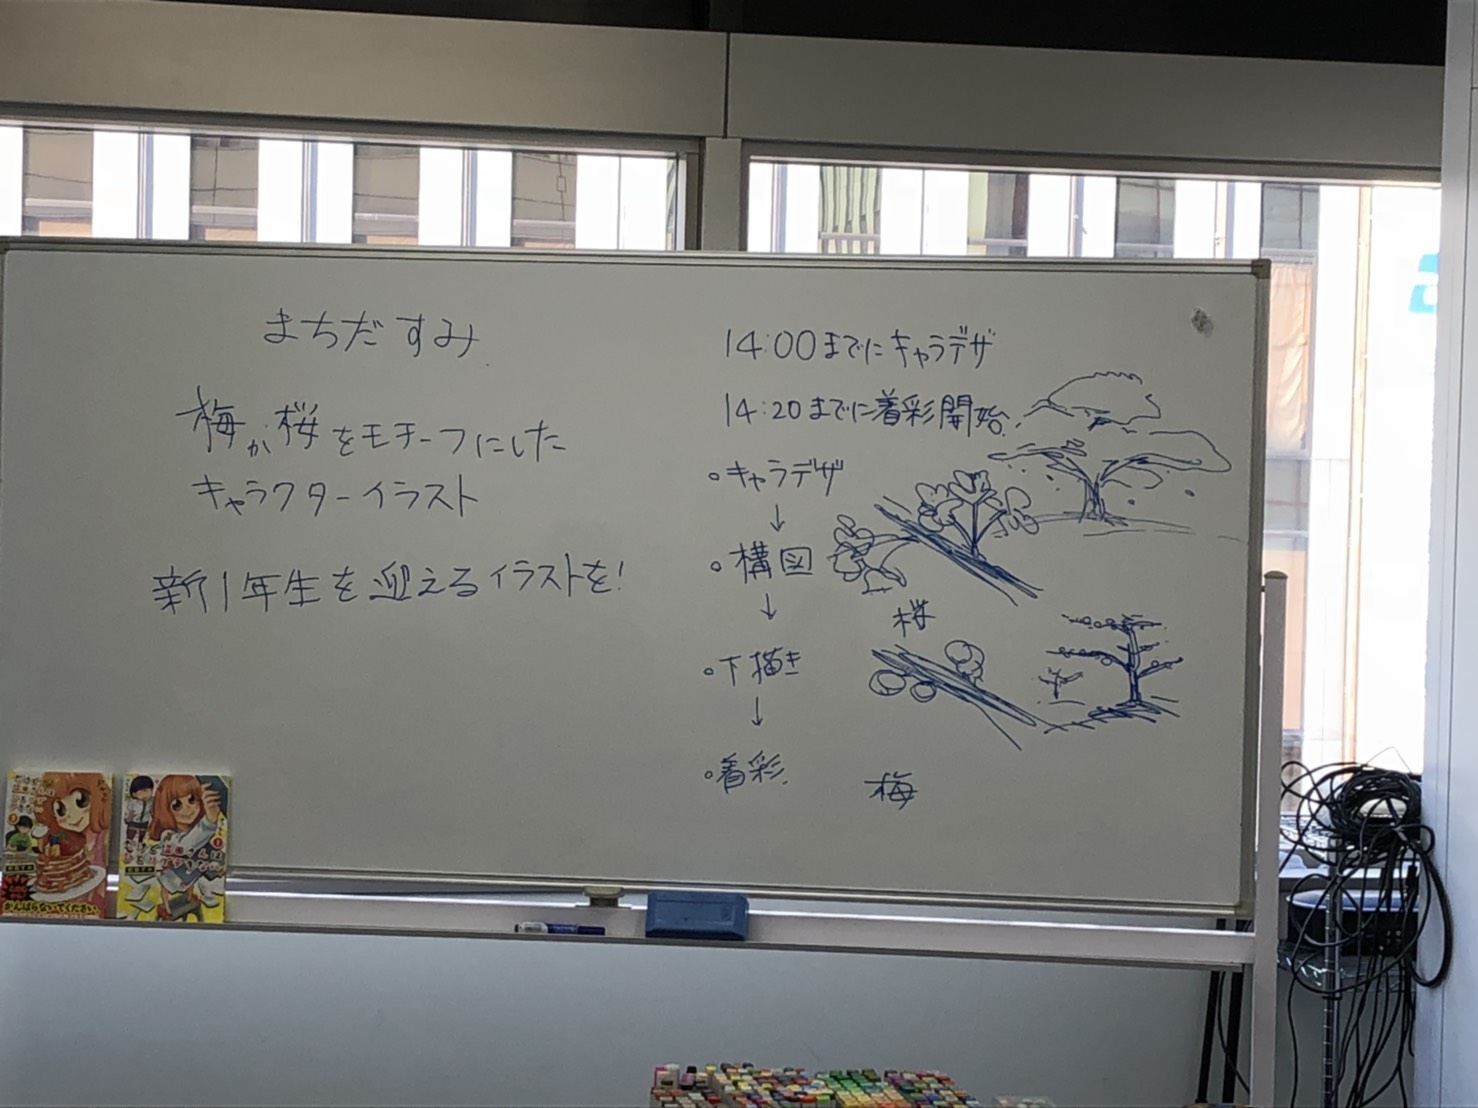 まちだすみ
梅か桜をモチーフにした
キャラクターイラスト
新1年生を迎えるイラストを!
14:00までにキャラデザ
14:20までに着彩開始.
。キャラデザ
↓
。構図
↓
。下描き
↓
。着彩.
桜
梅
がんばらないでください